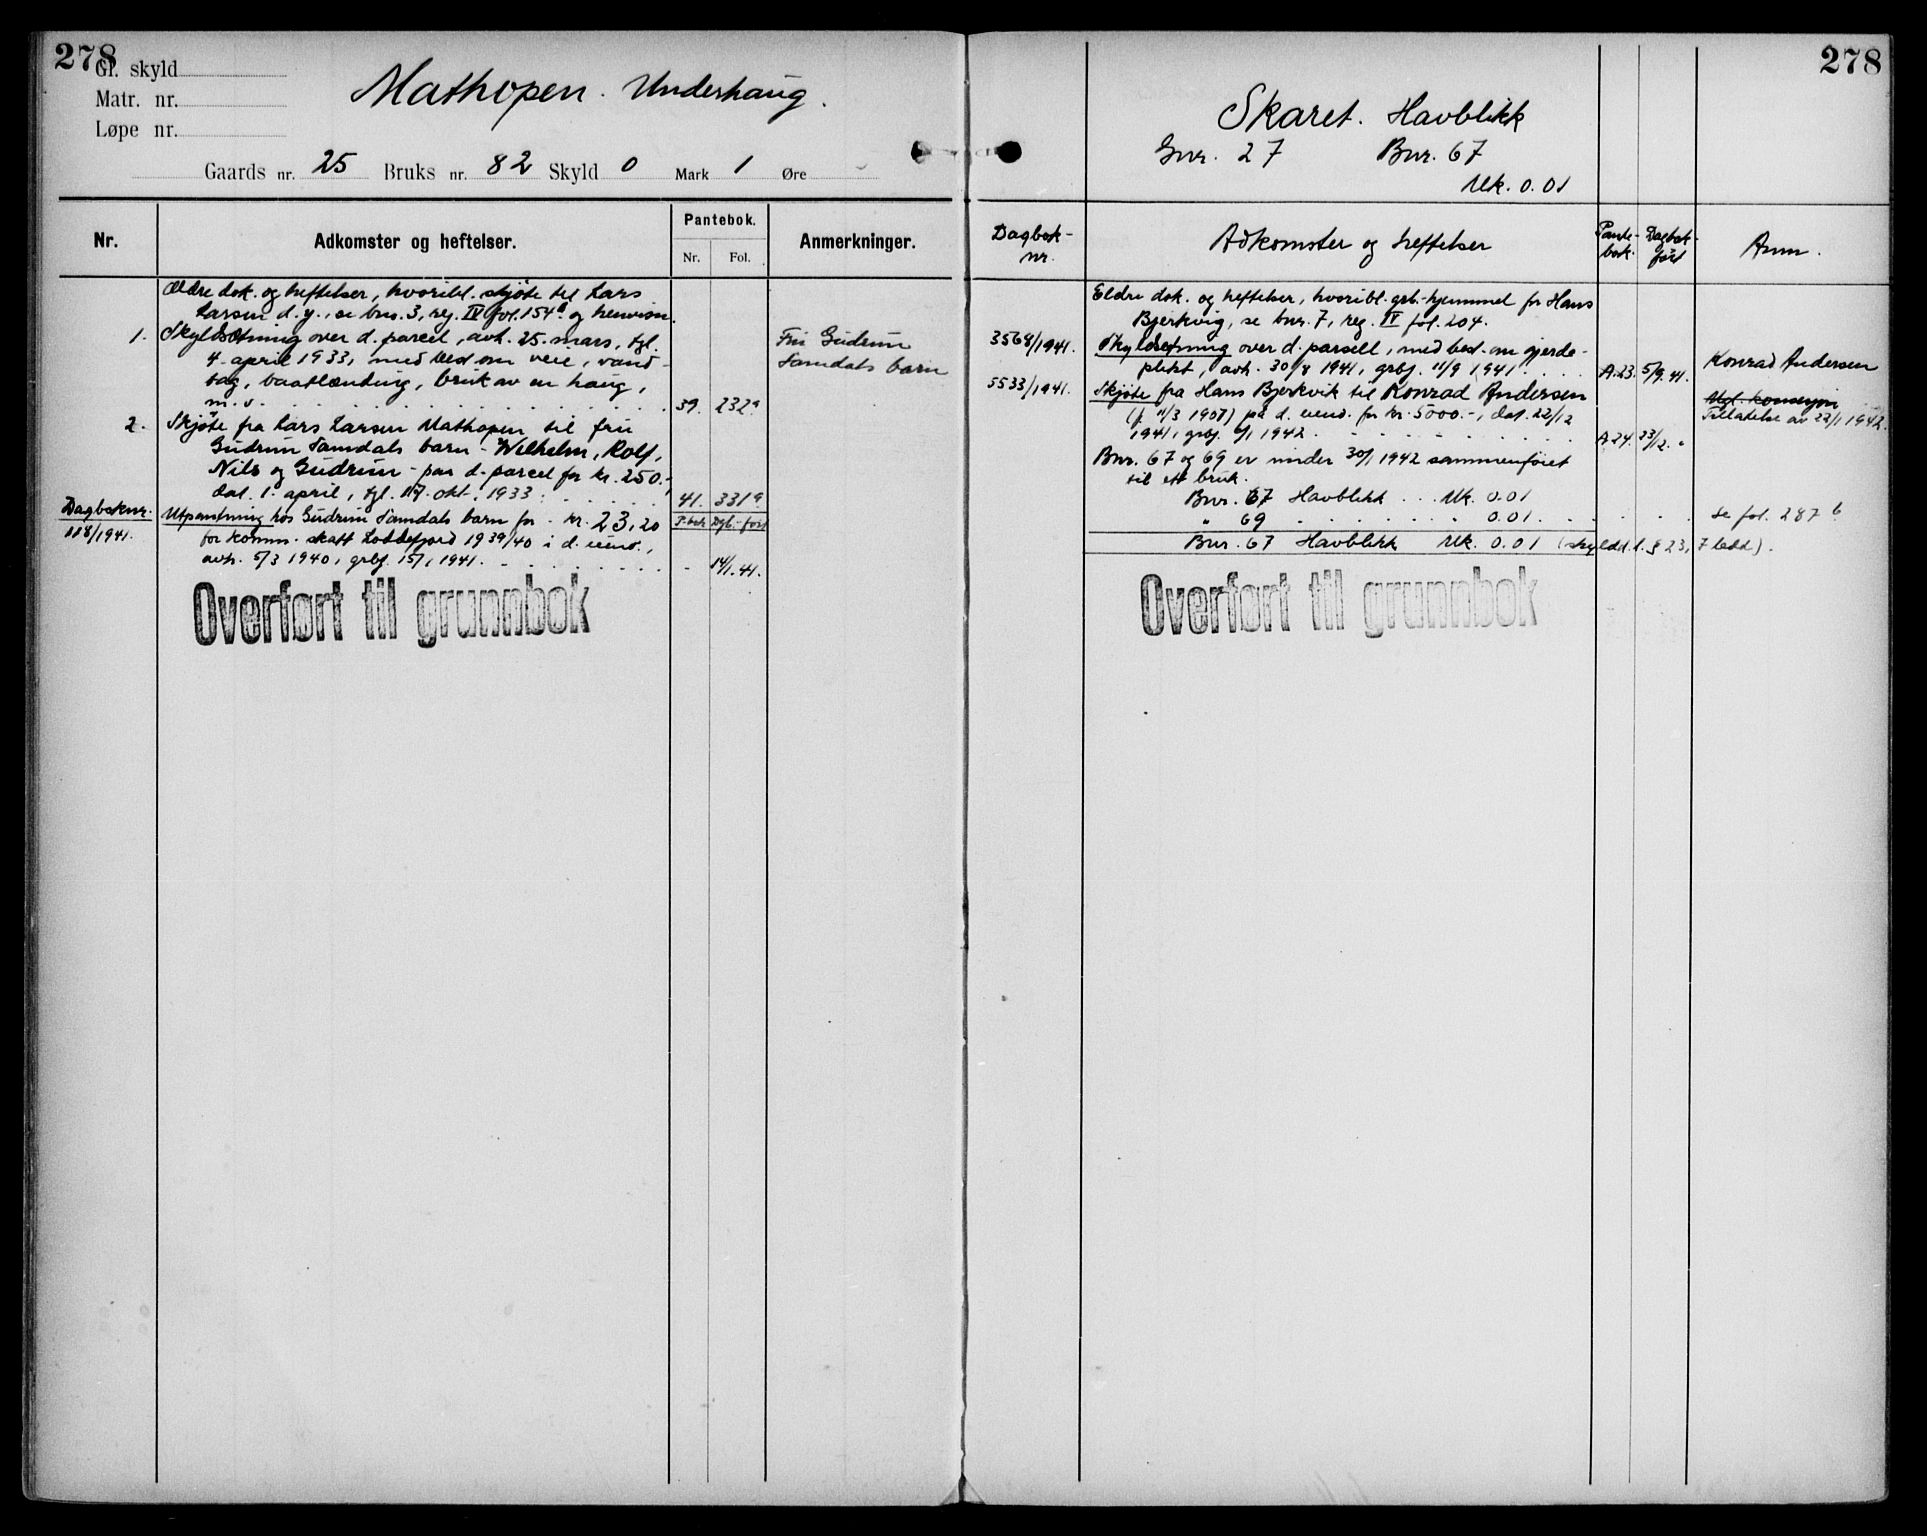 278
Gl. skyld
Matr. nr.
Løpe nr.
Mathopen. Underhaug.
Gaards nr. 25 Bruks nr. 82 Skyld 0 Mark 1 Øre
Nr.
Adkomster og heftelser.
Pantebok.
Nr. Fol.
Anmerkninger.
Ældre dok. og heftelser, hvoribl. skjøte til Lars
Larsen d. y., se bnr. 3, reg. IV fol. 154b og henvisn.
1. Skyldsetning over d. parcel, avh. 25. mars, tgl. Fru Gudrun
4. april 1933, med best om veie, vand- Tamdals barn
tag, baatlænding, bruk av en haug,
m. v. 39. 232a
2. Skjøte fra Lars Larsen Mathopen til fru
Gudrun Tamdals barn - Wilhelm, Rolf,
Nils og Gudrun - paa d. parcel for kr. 250.-,
dat. 1. april, tgl. 17. okt. 1933. 41. 331a
Dagboknr. Utpantning hos Gudrun Tamdals barn for kr. 23,20 P.bok Dgb.-ført
118/1941. for komm. skatt Loddefjord 1939/40 i d. eiend.,
avh. 5/3 1940, grbf. 15/1 1941. - 14/1.41.
Overført til grunnbok
278
Skaret. Havblikk
Gnr. 27 Bnr. 67
Mk. 0.01
Dagbok-
nr.
Adkomster og heftelser
Pante-
bok.
Dagbok-
ført
Anm.
Eldre dok. og heftelser, hvoribl. grb.-hjemmel for Hans
Bjerkvig, se bnr. 7, reg. IV fol. 204.
3568/1941. Skyldsetning over d. parsell, med best. om gjerde-
plikt, avh. 30/8 1941, grbf. 11/9 1941 A.23. 5/9.41. Konrad Andersen
5533/1941. Skjøte fra Hans Bjerkvik til Konrad Andersen Mgl. konsesjon
(f. 11/3 1907) på d. eiend. for kr. 5000.-, dat. 22/12 Tillatelse av 22/1 1942.
1941, grbf. 1/1 1942. A.24. 23/12. "
Bnr. 67 og 69 er under 30/1 1942 sammenføiet
til ett bruk.
Bnr. 67 Havblikk Mk. 0.01
" 69 0.01 Se fol. 287b
Bnr. 67 Havblikk Mk. 0.01 (skyldd.l. § 23, 7 ledd).
Overført til grunnbok